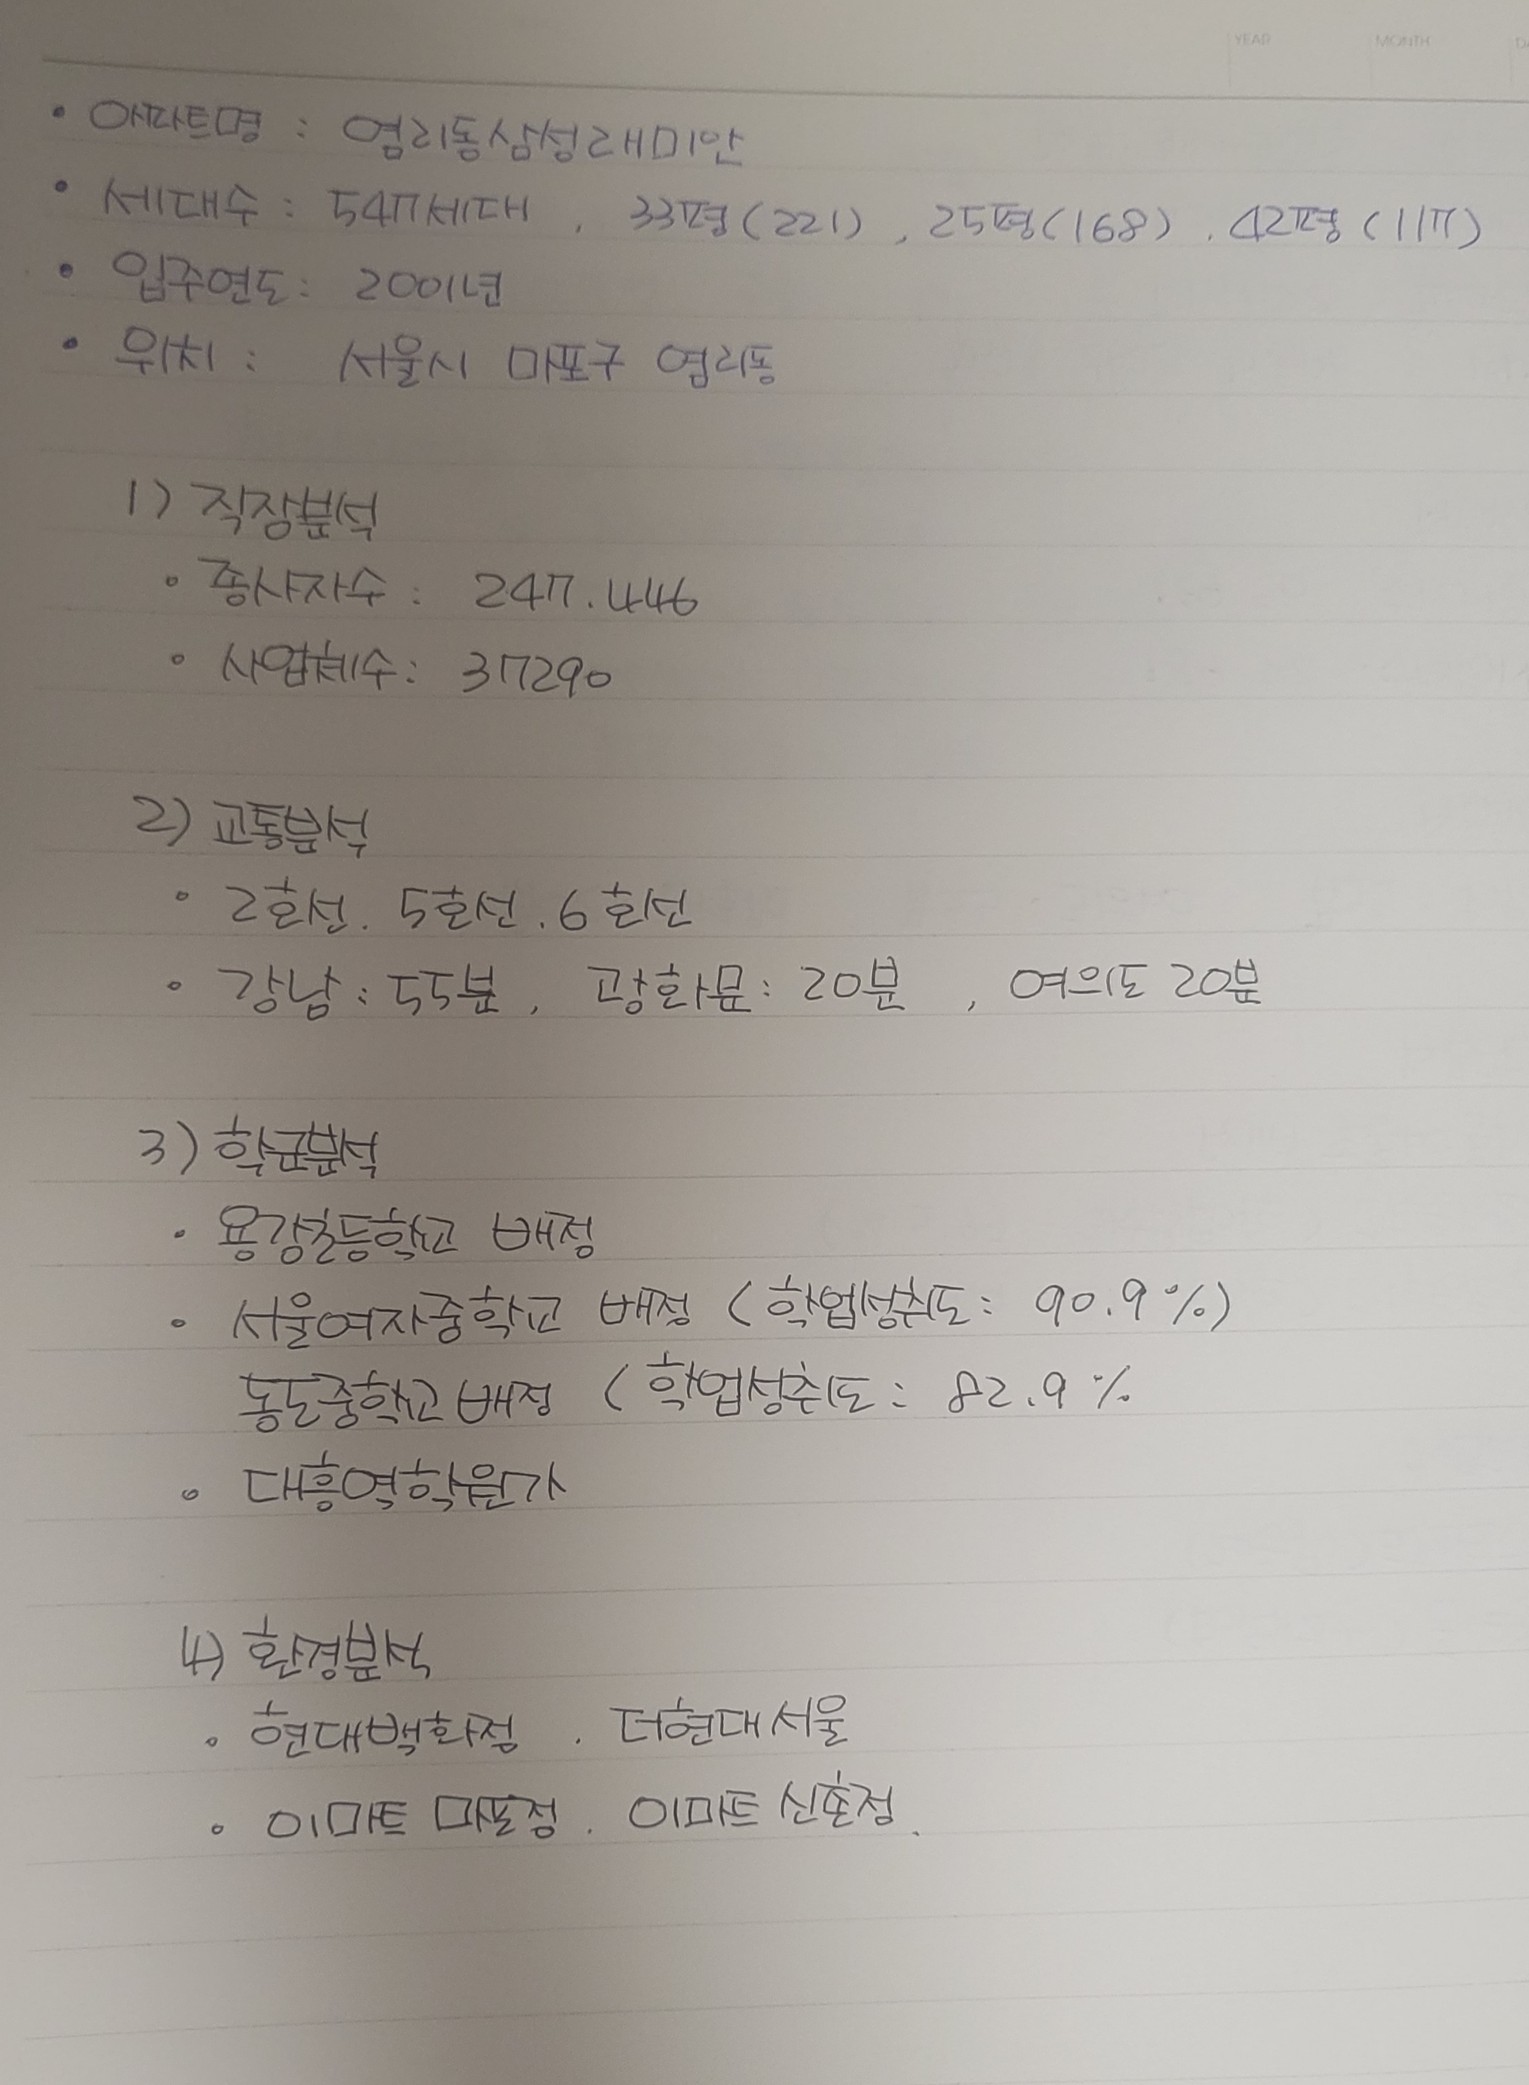 YEAR MONTH
• 아파트명 : 염리동삼성래미안
• 세대수 : 547세대 , 33평(221) , 25평(168) . 42평(117)
• 입주연도 : 2001년
• 위치 : 서울시 마포구 염리동
1) 직장분석
• 종사자수 : 247.446
• 사업체수 : 37290
2) 교통분석
• 2호선. 5호선 . 6호선
• 강남 : 55분 , 광화문 : 20분 , 여의도 20분
3) 학군분석
• 용강초등학교 배정
• 서울여자중학교 배정 (학업성취도 : 90.9%)
동도중학교 배정 (학업성취도 : 82.9%
• 대흥역학원가
4) 환경분석
• 현대백화점 . 더현대서울
• 이마트 마포점 . 이마트 신촌점.